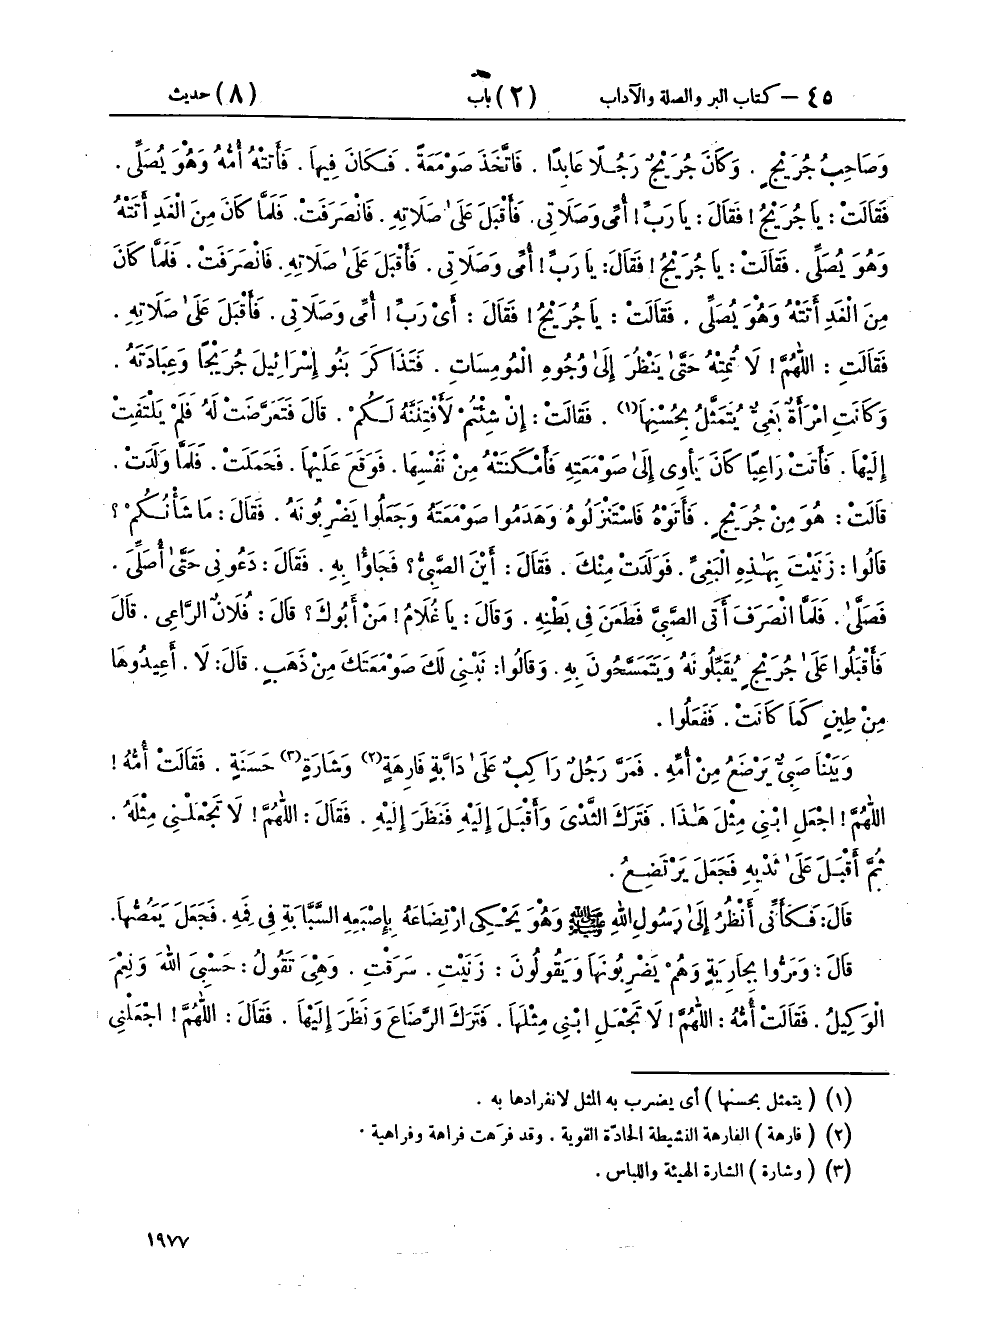 ٤٥ – كتاب البر والصلة والآداب (٢) باب (٨) حديث
وَصَاحِبُ جُرَيْجٍ . وَكَانَ جُرَيْجٌ رَجُلًا عَابِدًا . فَاتَّخَذَ صَوْمَعَةً . فَكَانَ فِيهَا . فَأَتَتْهُ أُمُّهُ وَهُوَ يُصَلِّي .
فَقَالَتْ : يَا جُرَيْجُ ! فَقَالَ : يَا رَبِّ ! أُمِّي وَصَلَاتِي . فَأَقْبَلَ عَلَىٰ صَلَاتِهِ . فَانْصَرَفَتْ . فَلَمَّا كَانَ مِنَ الْغَدِ أَتَتْهُ
وَهُوَ يُصَلِّي . فَقَالَتْ : يَا جُرَيْجُ ! فَقَالَ : يَا رَبِّ ! أُمِّي وَصَلَاتِي . فَأَقْبَلَ عَلَىٰ صَلَاتِهِ . فَانْصَرَفَتْ . فَلَمَّا كَانَ
مِنَ الْغَدِ أَتَتْهُ وَهُوَ يُصَلِّي . فَقَالَتْ : يَا جُرَيْجُ ! فَقَالَ : أَيْ رَبِّ ! أُمِّي وَصَلَاتِي . فَأَقْبَلَ عَلَىٰ صَلَاتِهِ .
فَقَالَتِ : اللَّهُمَّ ! لَا تُمِتْهُ حَتَّىٰ يَنْظُرَ إِلَىٰ وُجُوهِ الْمُومِسَاتِ . فَتَذَاكَرَ بَنُو إِسْرَائِيلَ جُرَيْجًا وَعِبَادَتَهُ .
وَكَانَتِ امْرَأَةٌ بَغِيٌّ يُتَمَثَّلُ بِحُسْنِهَا (١) . فَقَالَتْ : إِنْ شِئْتُمْ لَأَفْتِنَنَّهُ لَكُمْ . قَالَ فَتَعَرَّضَتْ لَهُ فَلَمْ يَلْتَفِتْ
إِلَيْهَا . فَأَتَتْ رَاعِيًا كَانَ يَأْوِي إِلَىٰ صَوْمَعَتِهِ فَأَمْكَنَتْهُ مِنْ نَفْسِهَا . فَوَقَعَ عَلَيْهَا . فَحَمَلَتْ . فَلَمَّا وَلَدَتْ .
قَالَتْ : هُوَ مِنْ جُرَيْجٍ . فَأَتَوْهُ فَاسْتَنْزَلُوهُ وَهَدَمُوا صَوْمَعَتَهُ وَجَعَلُوا يَضْرِبُونَهُ . فَقَالَ : مَا شَأْنُكُمْ ؟
قَالُوا : زَنَيْتَ بِهَٰذِهِ الْبَغِيِّ . فَوَلَدَتْ مِنْكَ . فَقَالَ : أَيْنَ الصَّبِيُّ ؟ فَجَاؤُا بِهِ . فَقَالَ : دَعُونِي حَتَّىٰ أُصَلِّيَ .
فَصَلَّىٰ . فَلَمَّا انْصَرَفَ أَتَى الصَّبِيَّ فَطَعَنَ فِي بَطْنِهِ . وَقَالَ : يَا غُلَامُ ! مَنْ أَبُوكَ ؟ قَالَ : فُلَانٌ الرَّاعِي . قَالَ
فَأَقْبَلُوا عَلَىٰ جُرَيْجٍ يُقَبِّلُونَهُ وَيَتَمَسَّحُونَ بِهِ . وَقَالُوا : نَبْنِي لَكَ صَوْمَعَتَكَ مِنْ ذَهَبٍ . قَالَ : لَا . أَعِيدُوهَا
مِنْ طِينٍ كَمَا كَانَتْ . فَفَعَلُوا .
وَبَيْنَا صَبِيٌّ يَرْضَعُ مِنْ أُمِّهِ . فَمَرَّ رَجُلٌ رَاكِبٌ عَلَىٰ دَابَّةٍ فَارِهَةٍ (٢) وَشَارَةٍ (٣) حَسَنَةٍ . فَقَالَتْ أُمُّهُ !
اللَّهُمَّ ! اجْعَلِ ابْنِي مِثْلَ هَٰذَا . فَتَرَكَ الثَّدْيَ وَأَقْبَلَ إِلَيْهِ فَنَظَرَ إِلَيْهِ . فَقَالَ : اللَّهُمَّ ! لَا تَجْعَلْنِي مِثْلَهُ .
ثُمَّ أَقْبَلَ عَلَىٰ ثَدْيِهِ فَجَعَلَ يَرْتَضِعُ .
قَالَ : فَكَأَنِّي أَنْظُرُ إِلَىٰ رَسُولِ اللهِ ﷺ وَهُوَ يَحْكِي ارْتِضَاعَهُ بِإِصْبَعِهِ السَّبَّابَةِ فِي فَمِهِ . فَجَعَلَ يَمَصُّهَا .
قَالَ : وَمَرُّوا بِجَارِيَةٍ وَهُمْ يَضْرِبُونَهَا وَيَقُولُونَ : زَنَيْتِ . سَرَقْتِ . وَهِيَ تَقُولُ : حَسْبِيَ اللهُ وَنِعْمَ
الْوَكِيلُ . فَقَالَتْ أُمُّهُ : اللَّهُمَّ ! لَا تَجْعَلِ ابْنِي مِثْلَهَا . فَتَرَكَ الرَّضَاعَ وَنَظَرَ إِلَيْهَا . فَقَالَ : اللَّهُمَّ ! اجْعَلْنِي
(١) ( يتمثل بحسنها ) أى يضرب به المثل لانفرادها به .
(٢) ( فارهة ) الفارهة النشيطة الحادّة القوية . وقد فرَهت فراهة وفراهية .
(٣) ( وشارة ) الشارة الهيئة واللباس .
١٩٧٧